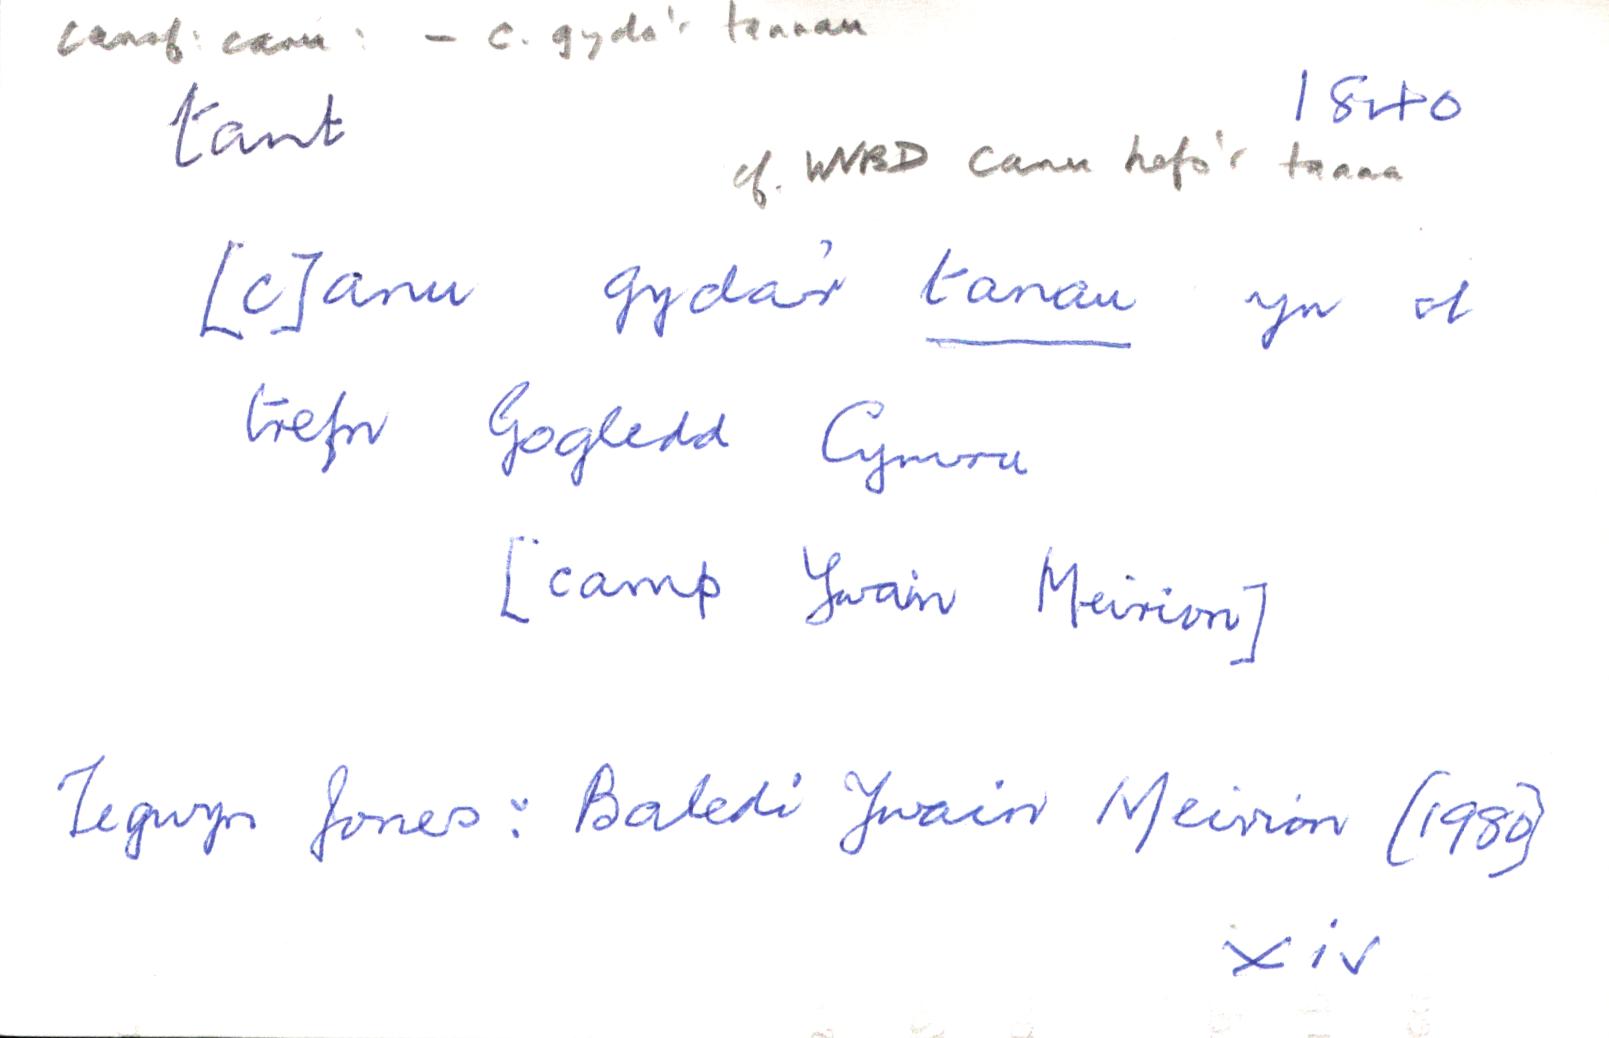 canf: canu: – c. gyda'r tannau
tant
1840
cf. WVBD canu hefo'r tanna
[c]anu gyda'r tanau yn ol
trefn Gogledd Cymru
[camp Ywain Meirion]
Tegwyn Jones: Baledi Ywain Meirion (1980)
xiv